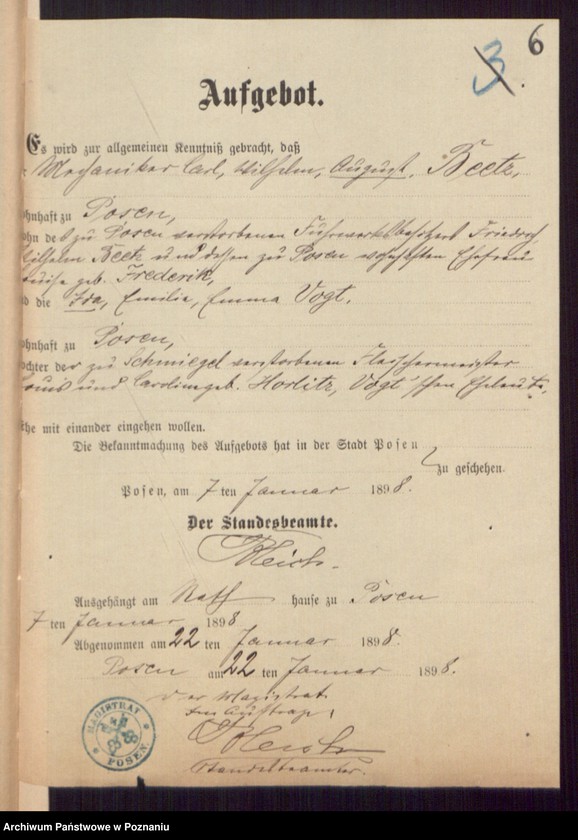 3 6
Aufgebot.
Es wird zur allgemeinen Kenntniß gebracht, daß
Mechaniker Carl, Wilhelm, August, Beetz,
ohnhaft zu Posen,
ohn des zu Posen verstorbenen Fuhrwerksbesitzers Friedrich
ilhelm Beetz und dessen zu Posen wohnhaften Ehefrau
ouise geb. Frederik,
d die Ida, Emilie, Emma Vogt,
ohnhaft zu Posen,
ochter der zu Schmiegel verstorbenen Fleischermeister
ouis und Caroline geb. Horlitz, Vogt'schen Eheleute,
he mit einander eingehen wollen.
Die Bekanntmachung des Aufgebots hat in der Stadt Posen
zu geschehen.
Posen, am 7 ten Januar 1898.
Der Standesbeamte.
Ausgehängt am Rath hause zu Posen
7 ten Januar 1898
Abgenommen am 22 ten Januar 1898.
Posen am 22 ten Januar 1898.
Der Magistrat
Im Auftrage,
Standesbeamter.
MAGISTRAT POSEN.
Archiwum Państwowe w Poznaniu